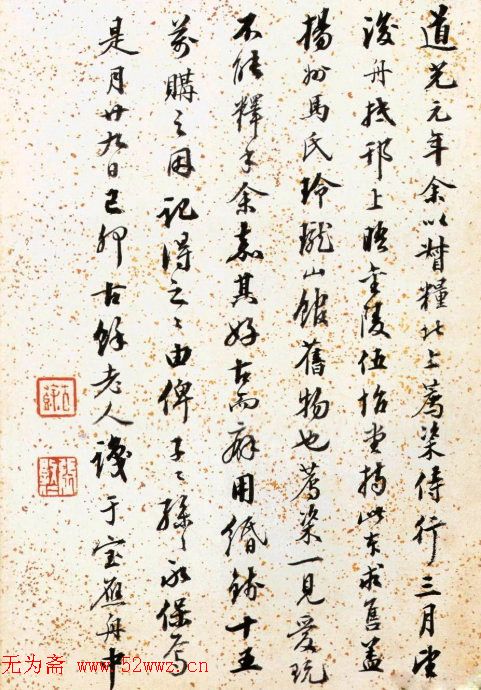 道光元年余以督糧北上荐粢侍行三月望
後舟授邗上晤金陵伍怡堂持此本求售蓋
揚州馬氏玲瓏山館舊物也荐粢一見愛玩
不能釋手余嘉其好古而癖用緡錢十五
萬購之因記得之之由俾子子孫孫永保焉
是月廿九日己卯古餘老人識于宝應舟中
无为斋 www.52wwz.cn